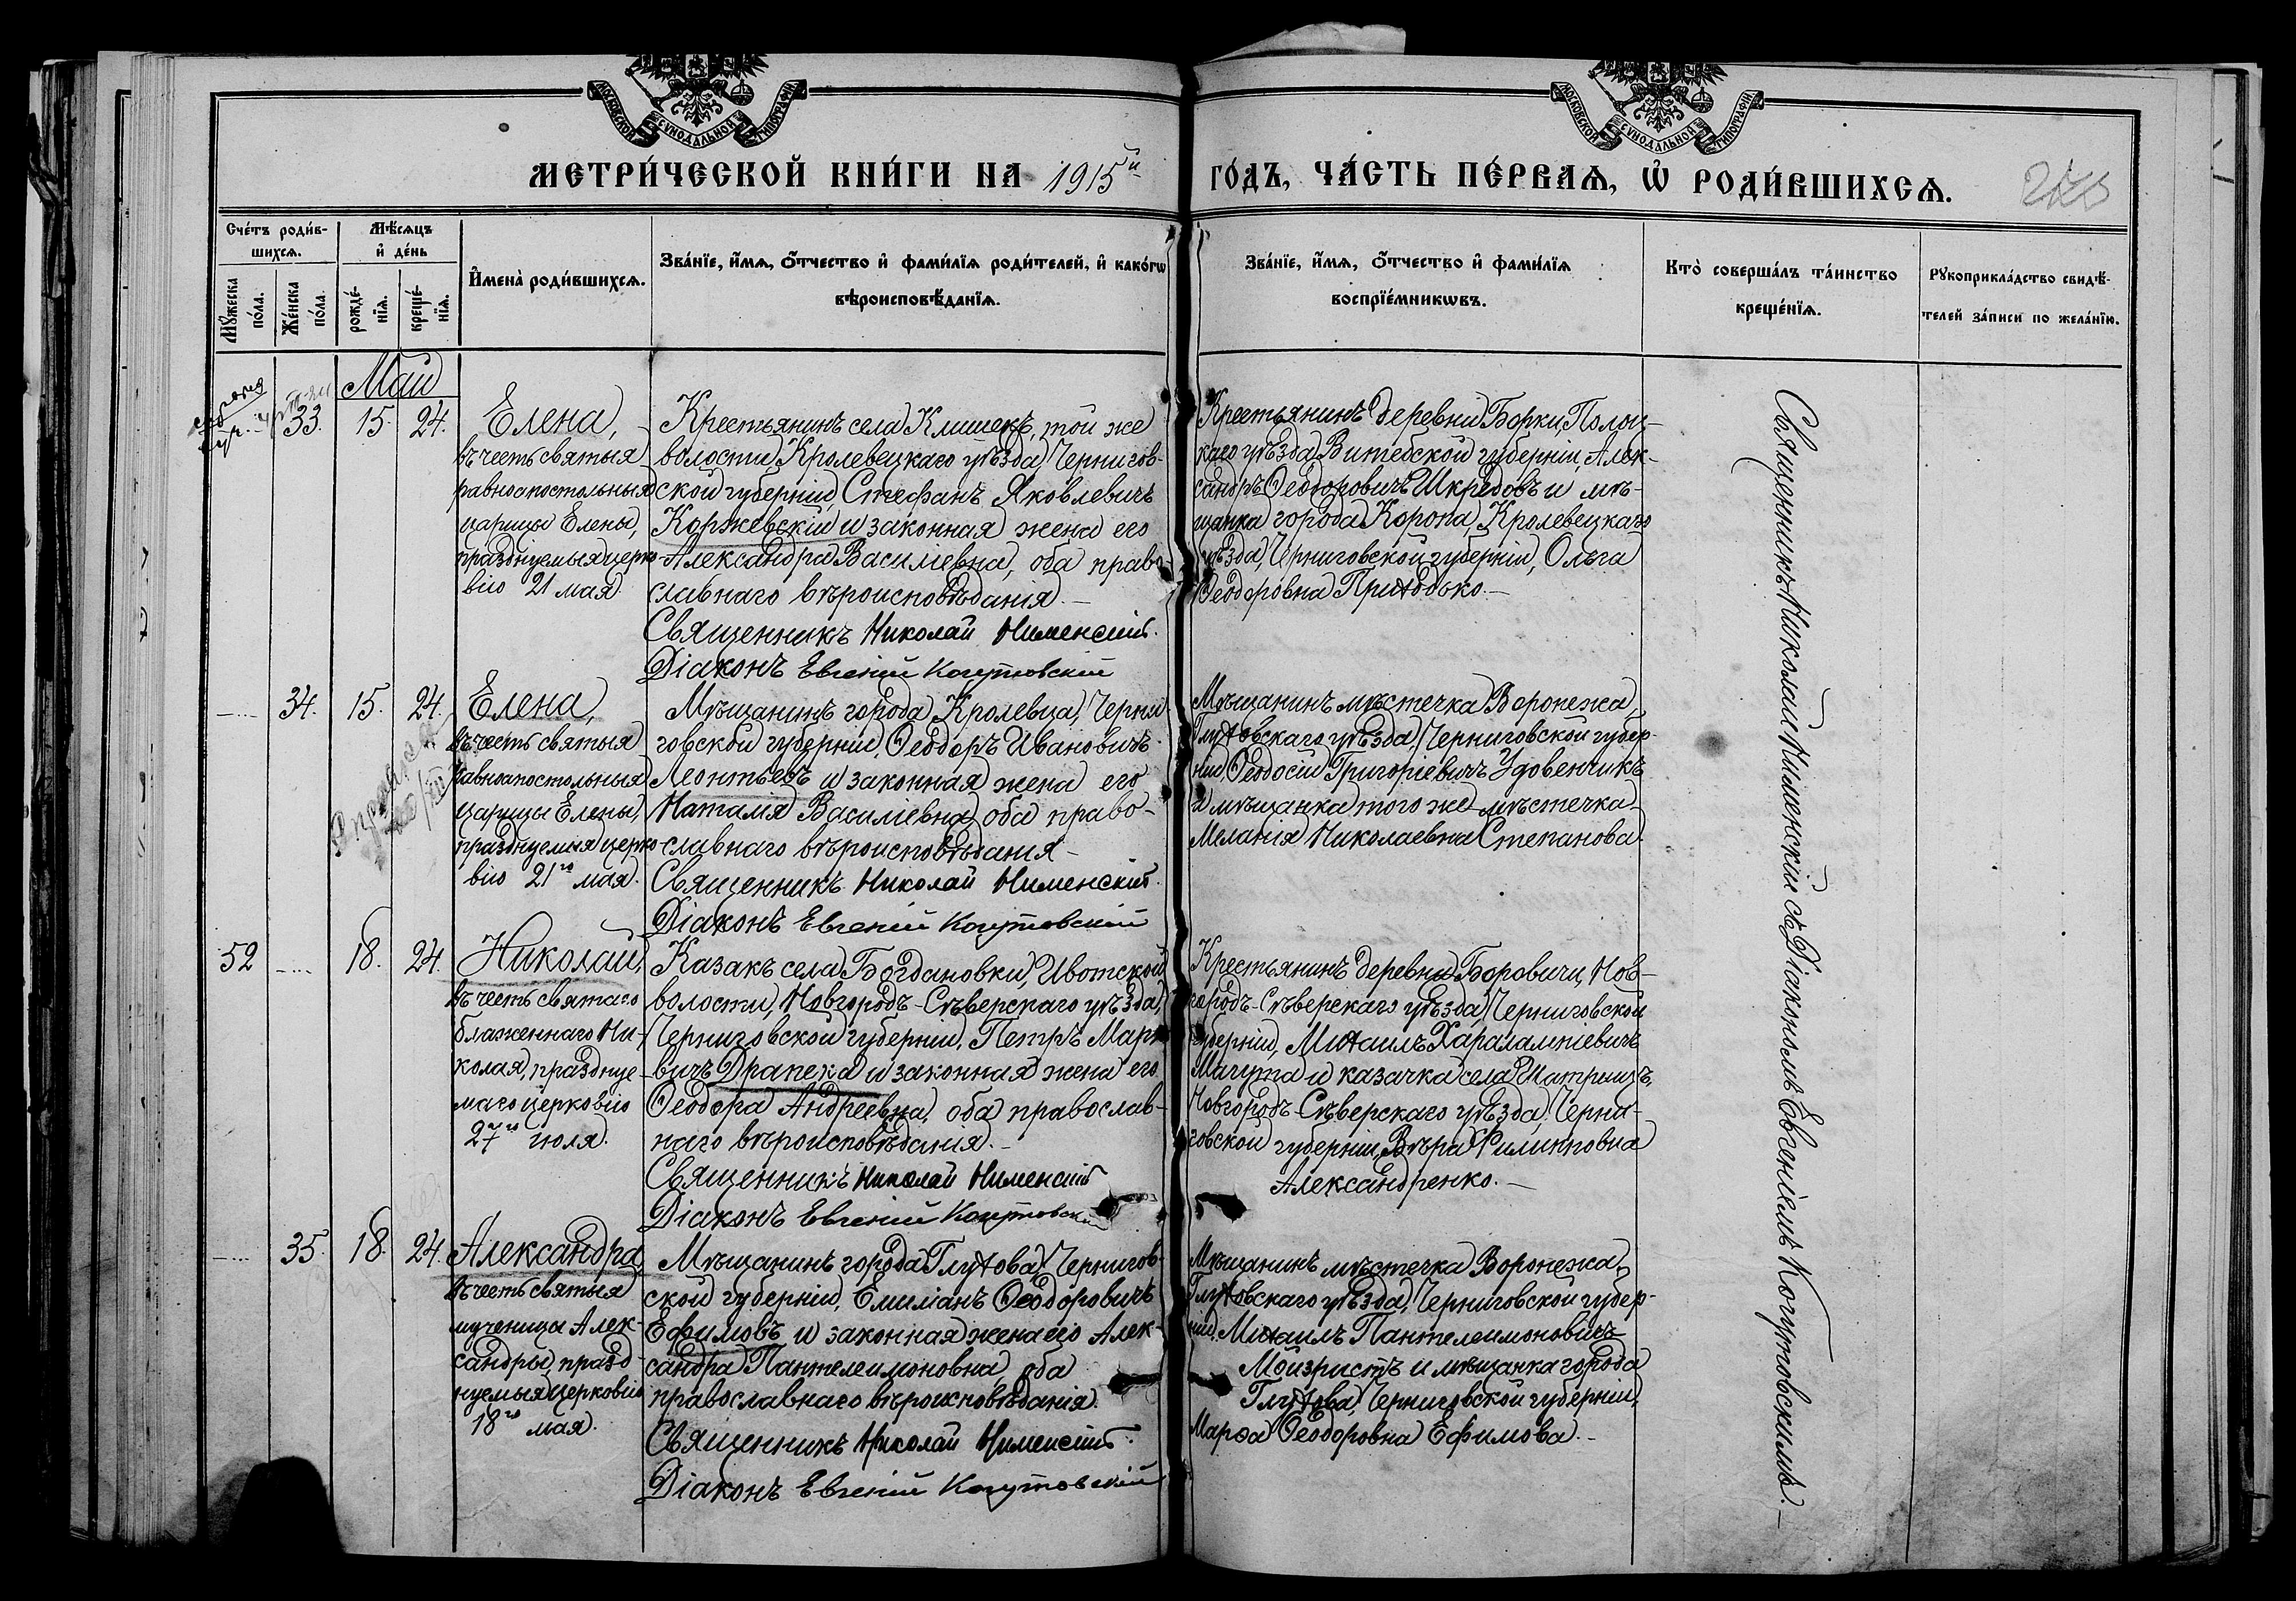 МОСКОВСКОЙ СѴНОДАЛЬНОЙ ТИПОГРАФІИ
МОСКОВСКОЙ СѴНОДАЛЬНОЙ ТИПОГРАФІИ
МЕТРИ́ЧЕСКОЙ КНИ́ГИ НА 1915й
ГО́ДЪ, ЧА́СТЬ ПЕ́РВАѦ, Ѡ҆ РОДИ́ВШИХСѦ.
Сче́тъ роди́в-
шихсѧ.
Мꙋ́жеска
по́ла.
Же́нска
по́ла.
Мѣ́сѧцъ
и҆ де́нь
рожде́-
нїѧ.
креще́-
нїѧ.
И҆мена̀ роди́вшихсѧ.
Зва́нїе, и҆́мѧ, ѻ҆́тчество и҆ фами́лїѧ роди́телей, и҆ како́гѡ
вѣроисповѣ́данїѧ.
Зва́нїе, и҆́мѧ, ѻ҆́тчество и҆ фами́лїѧ
воспрїе́мникѡвъ.
Кто̀ соверша́лъ та́инство
креще́нїѧ.
Рꙋкоприкла́дство свидѣ́-
телей за́писи по жела́нїю.
Май
33. 15. 24.
Елена,
въ честь святыя
равноапостольныя
царицы Елены,
празднуемыя церко-
вію 21 мая.
Крестьянинъ села Клишекъ, той же
волости, Кролевецкаго уѣзда, Чернигов-
ской губерніи, Стефанъ Яковлевичъ
Коржевскій и законная жена его
Александра Василіевна, оба право-
славнаго вѣроисповѣданія.—
Священникъ Николай Нименскій.
Діаконъ Евгеній Когутовскій
Крестьянинъ деревни Борки, Полоц-
каго уѣзда, Витебской губерніи, Алек-
сандръ Ѳеодоровичъ Шкредовъ и мѣ-
щанка города Коропа, Кролевецкаго
уѣзда, Черниговской губерніи, Ольга
Ѳеодоровна Приходько.—
34. 15. 24.
Елена,
въ честь святыя
равноапостольныя
царицы Елены,
празднуемыя церко-
вію 21го мая.
Мѣщанинъ города Кролевца, Черни-
говской губерніи, Ѳеодоръ Ивановичъ
Леонтьевъ и законная жена его
Наталія Василіевна, оба право-
славнаго вѣроисповѣданія.—
Священникъ Николай Нименскій.
Діаконъ Евгеній Когутовскій
Мѣщанинъ мѣстечка Воронежа,
Глуховскаго уѣзда, Черниговской губер-
ніи, Ѳеодосій Григоріевичъ Удовенчикъ
и мѣщанка того же мѣстечка
Меланія Николаевна Степанова.
52 18. 24.
Николай,
въ честь святаго
блаженнаго Ни-
колая, празднуе-
маго церковію
27го іюля.
Казакъ села Богдановки, Ивотской
волости, Новгородъ-Сѣверскаго уѣзда,
Черниговской губерніи, Петръ Марко-
вичъ Драпека и законная жена его
Ѳеодора Андреевна, оба православ-
наго вѣроисповѣданія.—
Священникъ Николай Нименскій
Діаконъ Евгеній Когутовскій
Крестьянинъ деревни Боровичи, Нов-
городъ-Сѣверскаго уѣзда, Черниговской
губерніи, Михаилъ Харалампіевичъ
Мачута и казачка села Шатрищъ,
Новгородъ-Сѣверскаго уѣзда, Черни-
говской губерніи, Вѣра Филипповна
Александренко.—
35. 18. 24.
Александра
въ честь святыя
мученицы Алек-
сандры, празд-
нуемыя церковію
18го мая.
Мѣщанинъ города Глухова, Чернигов-
ской губерніи, Емиліанъ Ѳеодоровичъ
Ефимовъ и законная жена его Алек-
сандра Пантелеимоновна, оба
православнаго вѣроисповѣданія.
Священникъ Николай Нименскій.
Діаконъ Евгеній Когутовскій
Мѣщанинъ мѣстечка Воронежа,
Глуховскаго уѣзда, Черниговской губер-
ніи, Михаилъ Пантелеимоновичъ
Мойзристъ и мѣщанка города
Глухова, Черниговской губерніи,
Марѳа Ѳеодоровна Ефимова.—
Священникъ Николай Нименскій съ Діакономъ Евгеніемъ Когутовскимъ.—